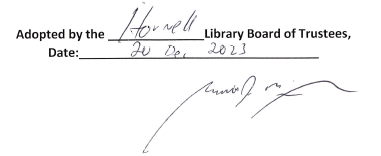 Adopted by the Hornell Library Board of Trustees,
Date: 20 Dec 2023